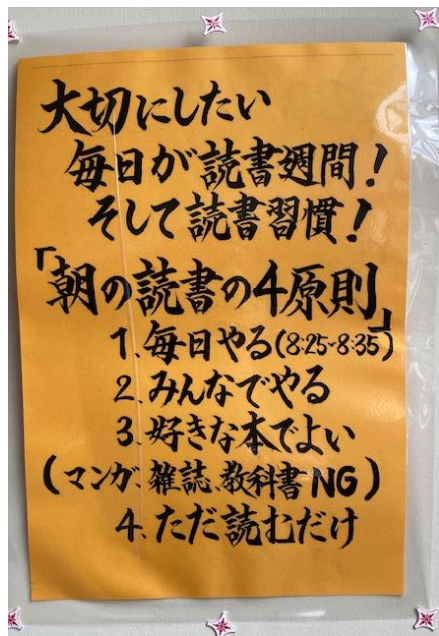 大切にしたい
毎日が読書週間!
そして読書習慣!
「朝の読書の4原則」
1.毎日やる(8:25~8:35)
2.みんなでやる
3.好きな本でよい
(マンガ、雑誌、教科書NG)
4.ただ読むだけ